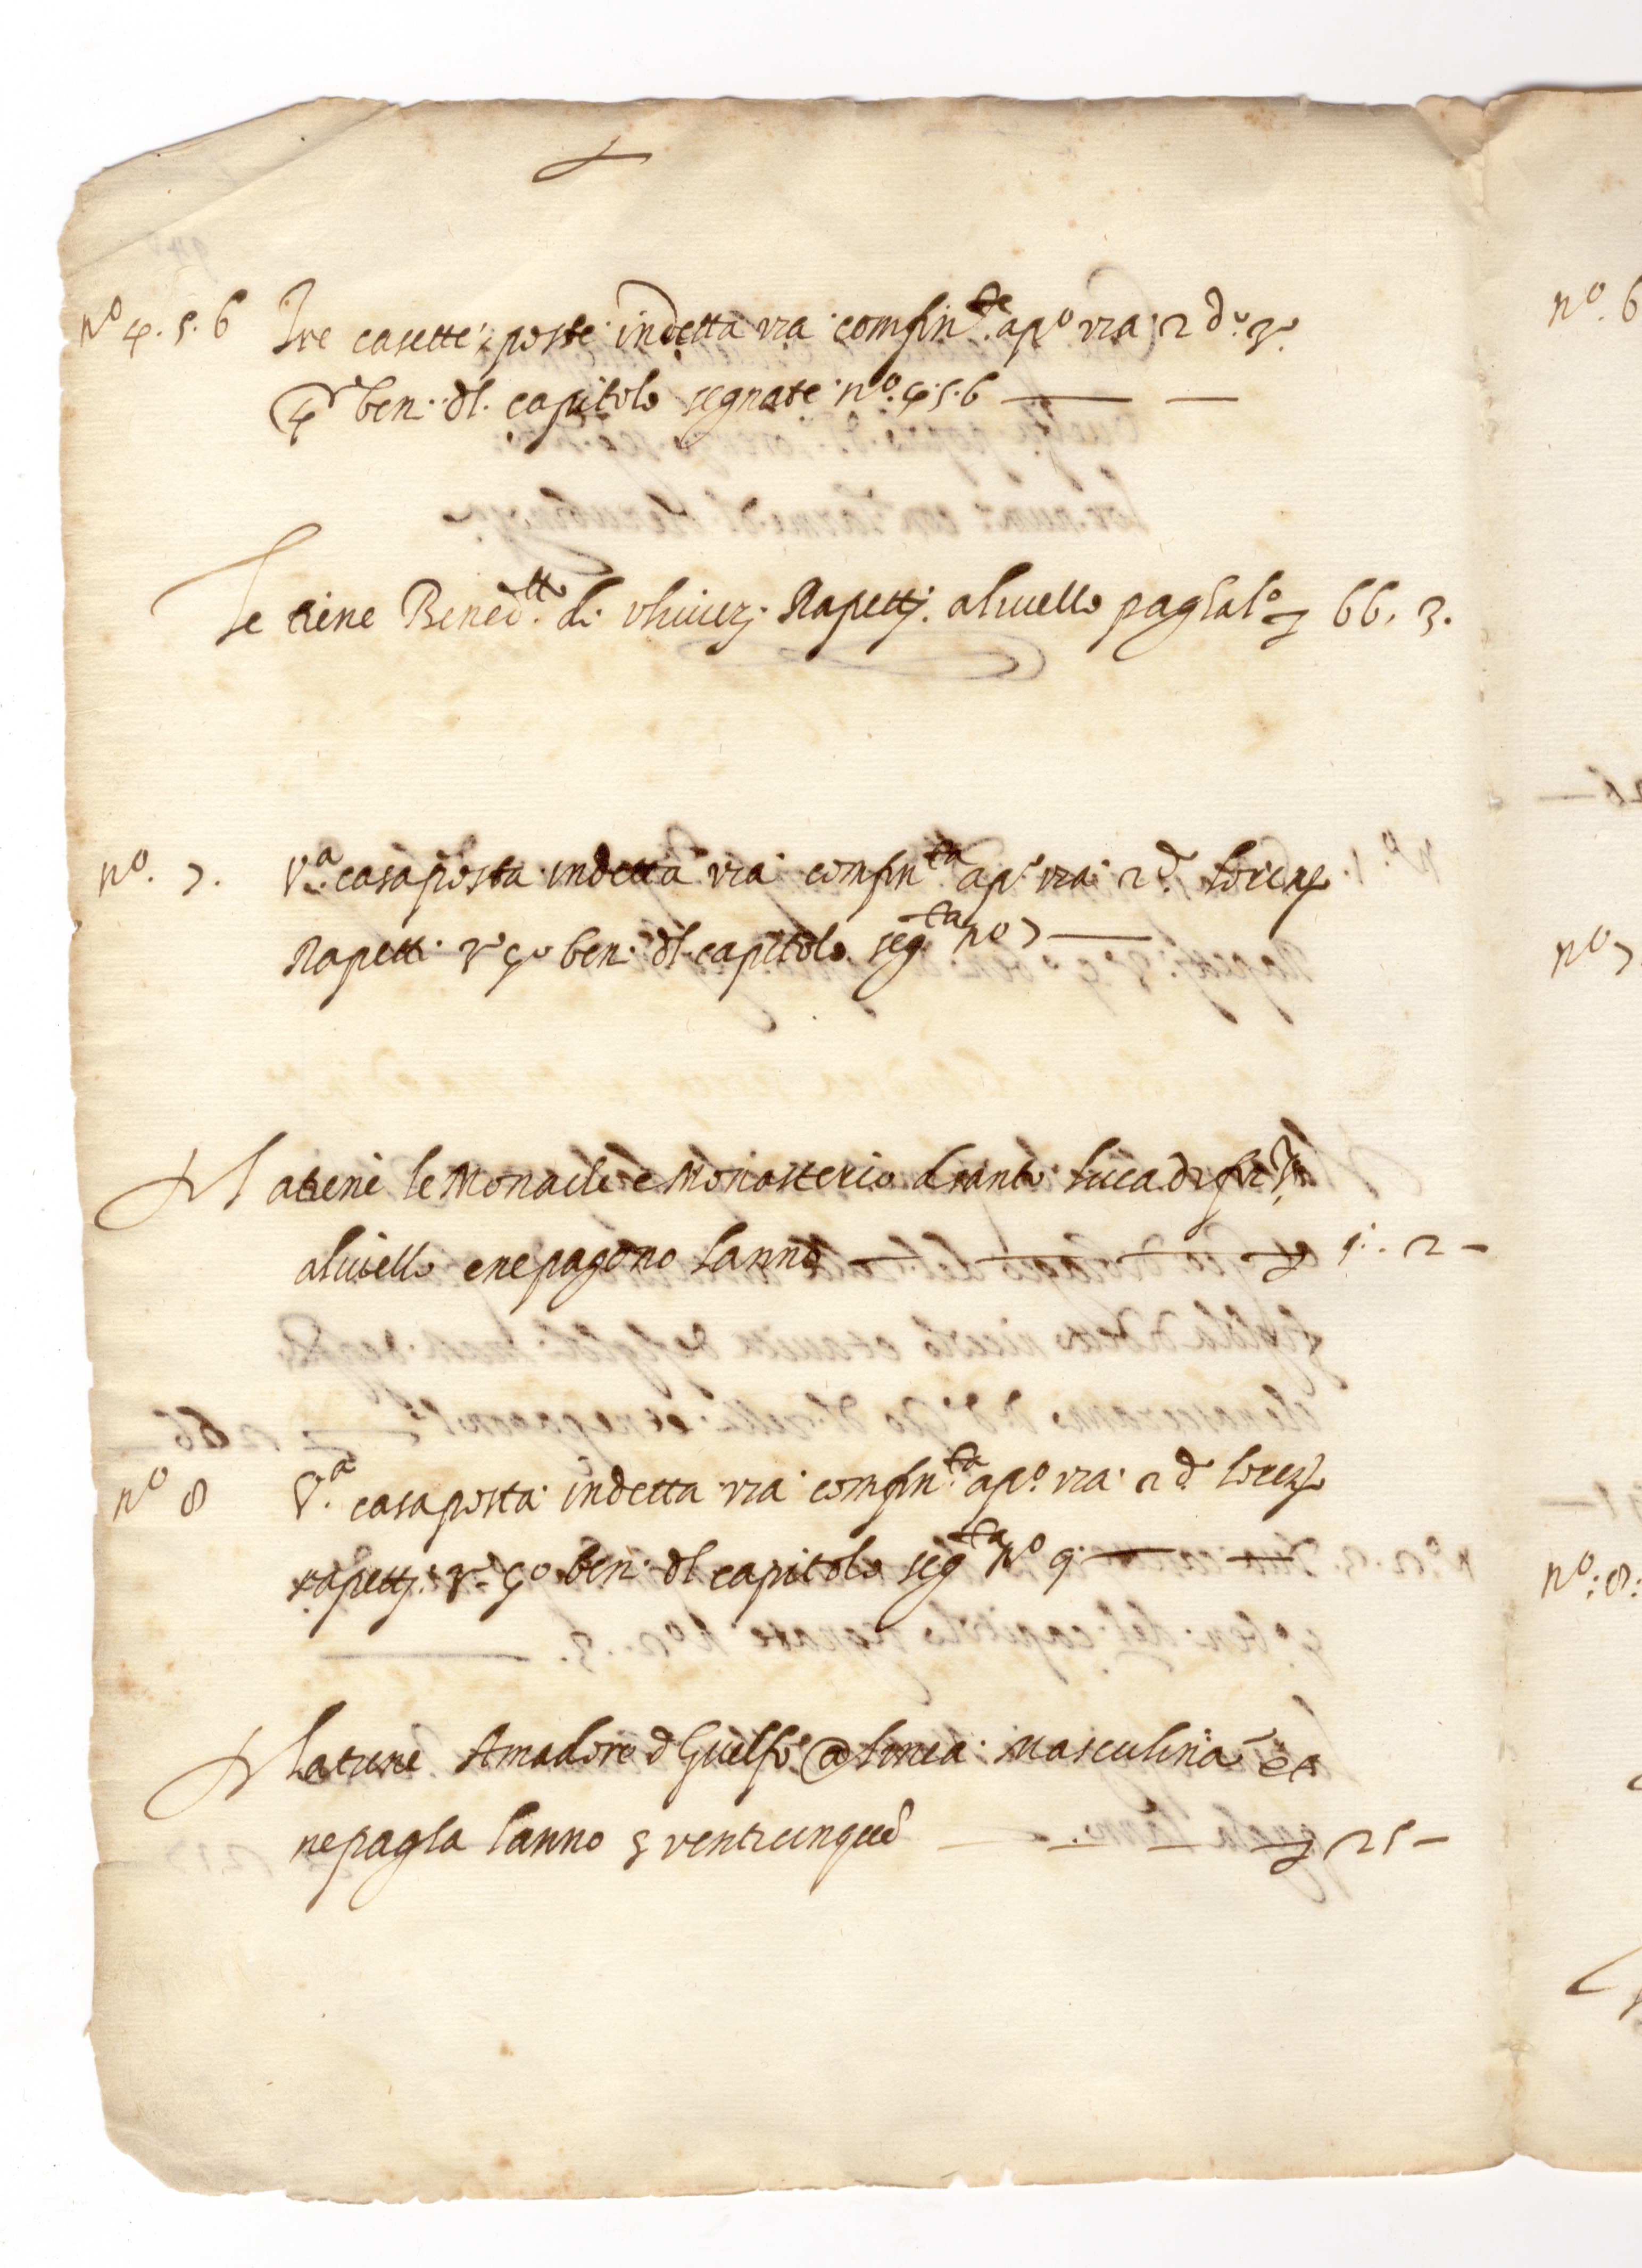 nº 4. 5. 6 Tre casette poste indetta via confin.te ap.o via 2 d.o 3.o
4.o ben. dl. capitolo segnate nº. 4. 5. 6
Le tiene Bened.tto di Uliuierj Rapettj. aliuello pagla lº 66. 3.
nº. 7. V.a casa posta indetta via confin.ta ap.o via 2 d. Lorenzo
Rapetti 3.o 4.o ben. dl capitolo seg.ta nº 7
La tiene le Monache e Monasterio di santo Luca di
aliuello e ne pagono lanno 2
nº 8 V.a casa posta indetta via confin.ta ap.o via 2 d. Lorenzo
rapettj. 3.o 4.o ben. dl capitolo seg.ta nº 9.
La tiene Amadore d Guelfo @ linea masculina et
ne pagla lanno venticinque 25
nº. 6
nº 7
nº: 8: